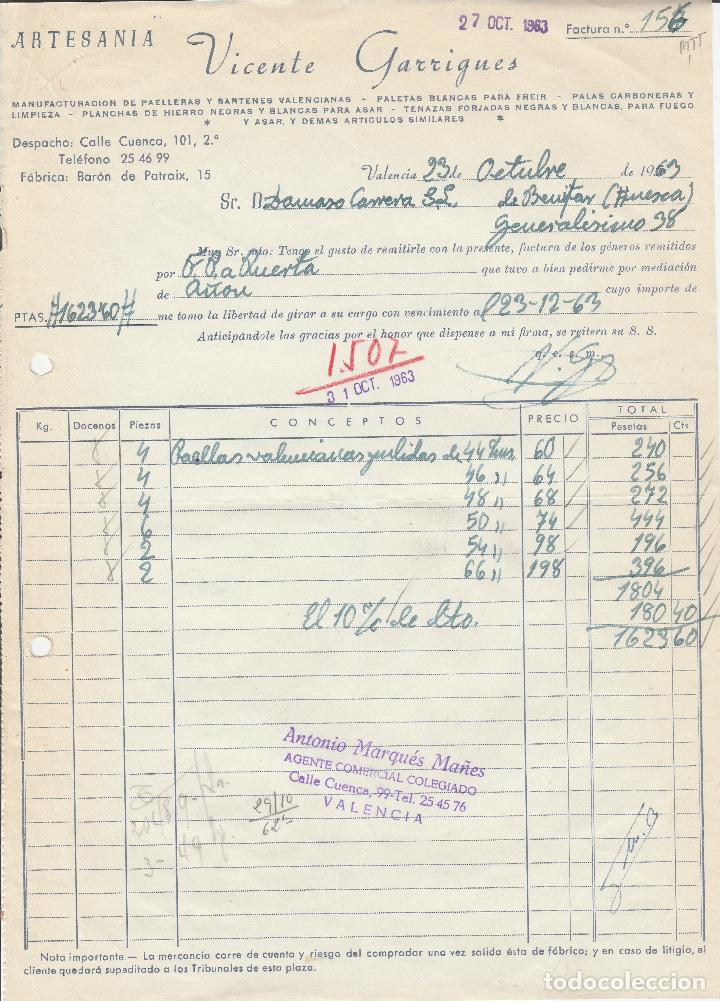 27 OCT. 1963
Factura n.º 156
ARTESANIA
Vicente Garrigues
MANUFACTURACION DE PAELLERAS Y SARTENES VALENCIANAS - PALETAS BLANCAS PARA FREIR - PALAS CARBONERAS Y
LIMPIEZA - PLANCHAS DE HIERRO NEGRAS Y BLANCAS PARA ASAR - TENAZAS FORJADAS NEGRAS Y BLANCAS, PARA FUEGO
* Y ASAR, Y DEMAS ARTICULOS SIMILARES *
Despacho: Calle Cuenca, 101, 2.º
Teléfono 25 46 99
Fábrica: Barón de Patraix, 15
Valencia 23 de Octubre de 1963
Sr. D. Damaso Carrera S.L. de (Huesca)
Generalisimo 38
Muy Sr. mío: Tengo el gusto de remitirle con la presente, factura de los géneros remitidos
por que tuvo a bien pedirme por mediación
de cuyo importe de
PTAS. #162360# me tomo la libertad de girar a su cargo con vencimiento a 23-12-63
Anticipándole las gracias por el honor que dispense a mi firma, se reitera su S. S.
q. e. s. m.
1.507
31 OCT. 1963
Kg. Docenas Piezas CONCEPTOS PRECIO TOTAL
Pesetas Cts
4 Paellas valencianas pulidas de 44 60 240
4 46 " 64 256
4 48 " 68 272
6 50 " 74 444
2 54 " 98 196
2 66 " 198 396
1804
El 10% de dto. 180 40
1623 60
Antonio Marqués Mañes
AGENTE COMERCIAL COLEGIADO
Calle Cuenca, 99-Tel. 25 45 76
VALENCIA
29/10
Nota importante.— La mercancía corre de cuenta y riesgo del comprador una vez salida ésta de fábrica; y en caso de litigio, el
cliente quedará supeditado a los Tribunales de esta plaza.
todocoleccion